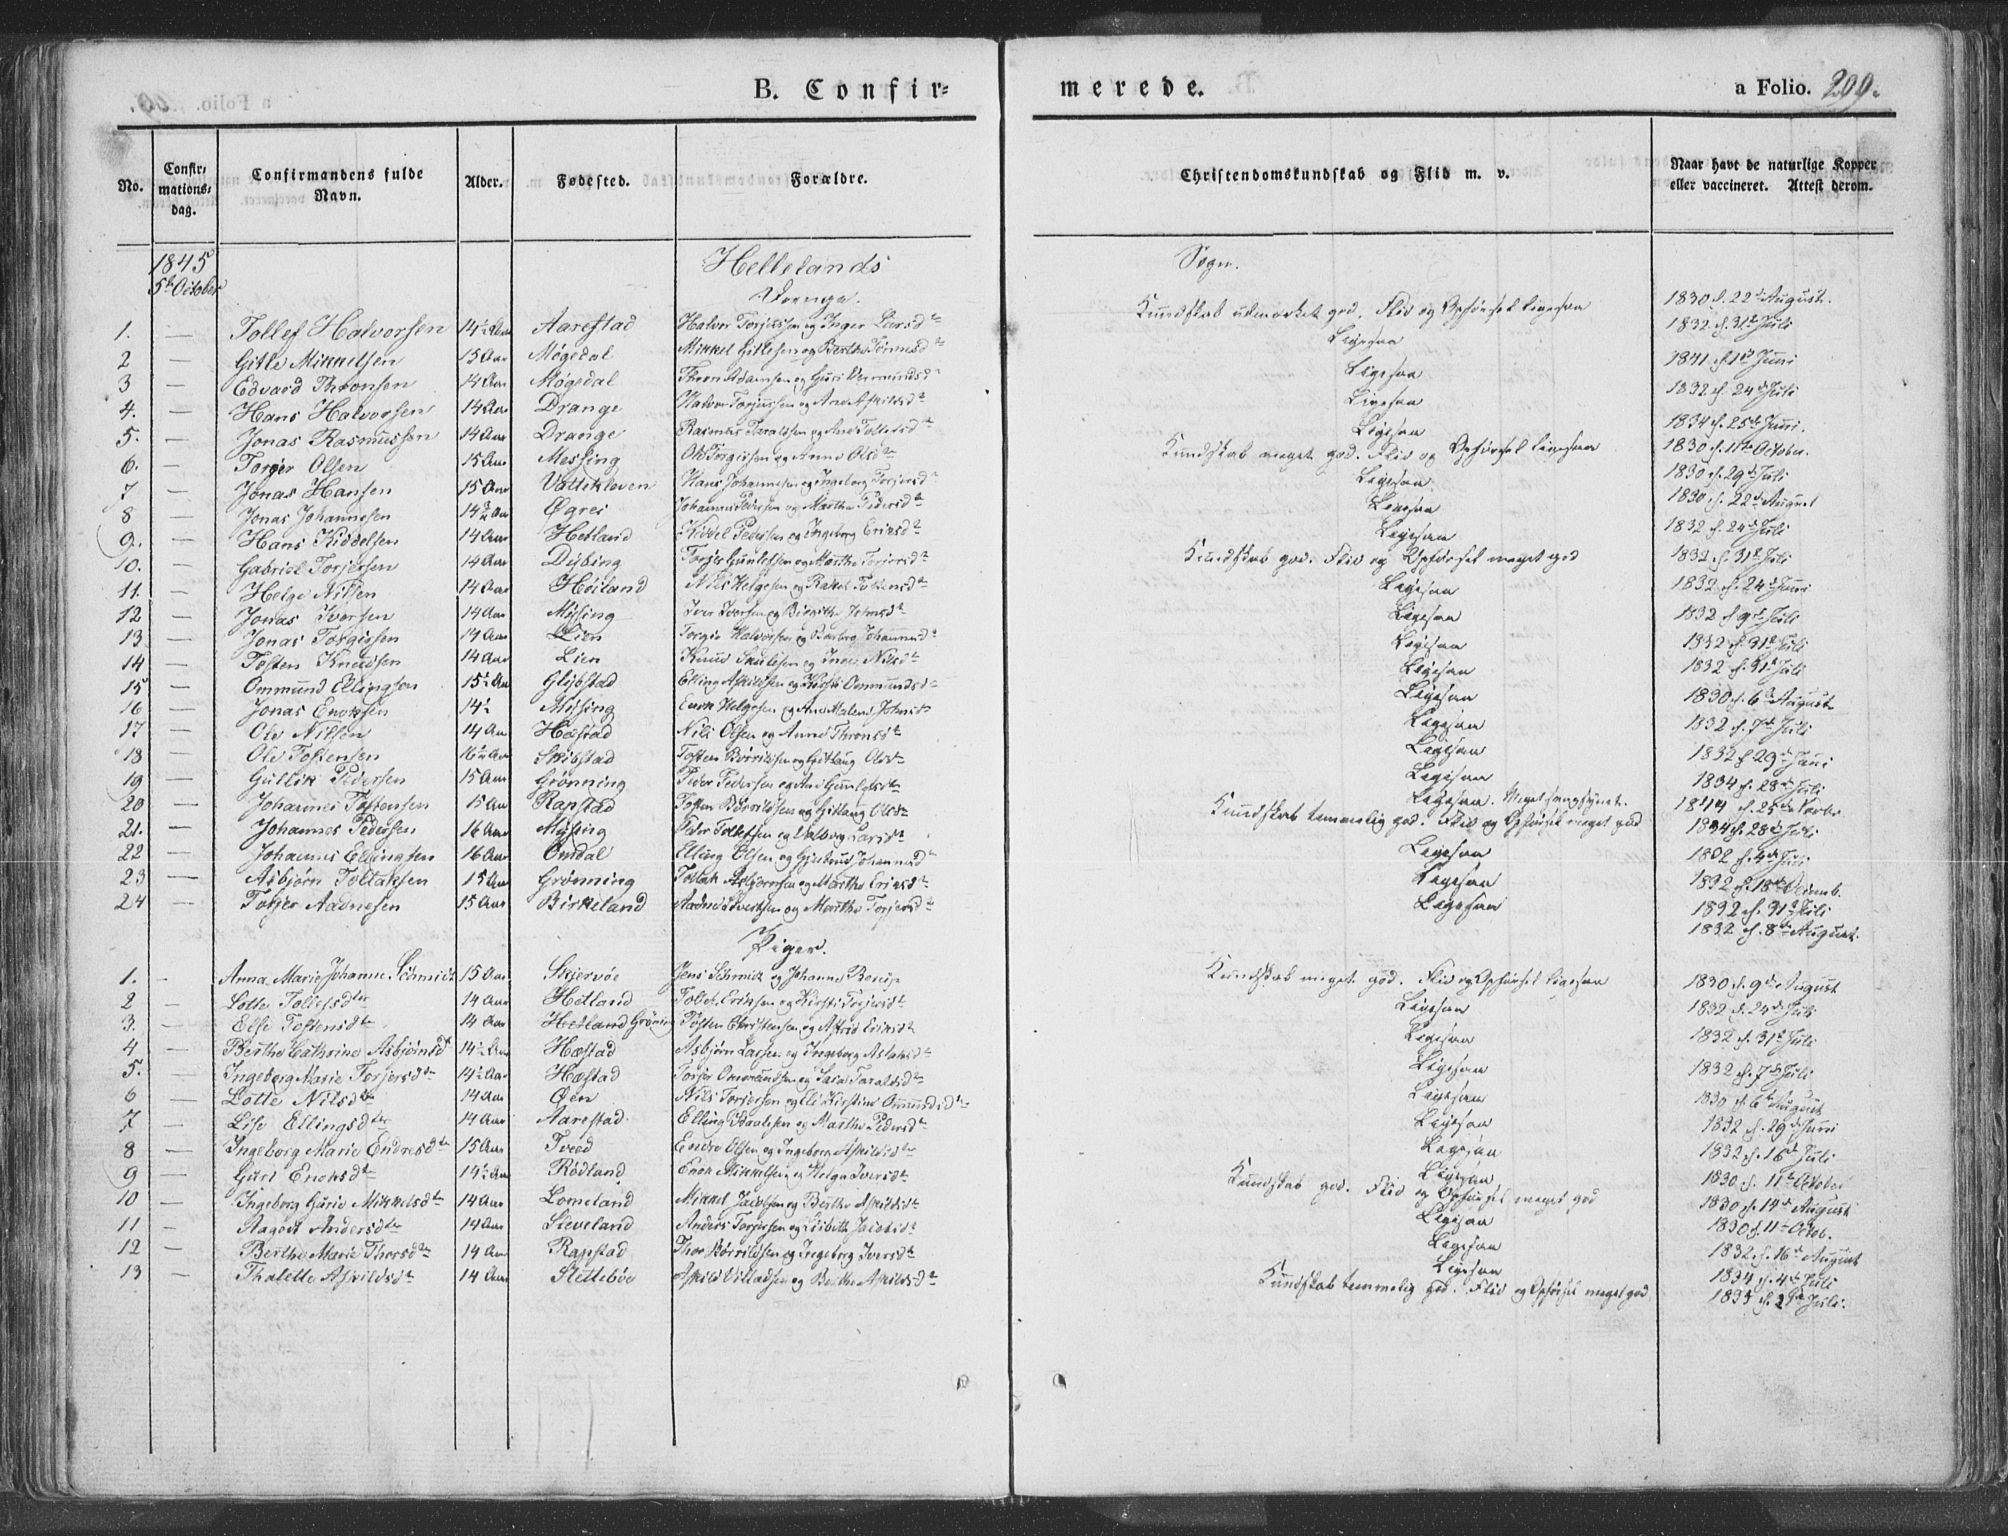 B. Confir=
merede.
a Folio. 209.
No.
Confir,
mations,
dag.
Confirmandens fulde
Navn.
Alder.
Fødested.
Forældre.
Christendomskundskab og Flid m. v.
Naar havt de naturlige Kopper
eller vaccineret. Attest derom.
1845 Hellelands Sogn.
5te October
Drenge.
1. — Tollef Halvorsen 14½ Aar Aarestad Halvor Torjussen og Inger Larsdtr Kundskab udmærket god. Flid og Opførsel ligesaa 1830 d. 22de August.
2 — Gitle Mikkelsen 15 Aar Møgedal Mikkel Gitlesen og Berthe Tønnesdtr Ligesaa 1832 d. 31te Juli
3 — Edvard Thronsen 14 Aar Møgedal Thron Adamsen og Guri Vermundsdtr Ligesaa 1841 d. 1te Juni
4. — Hans Halvorsen 14 Aar Drange Halvor Torjussen og Ane Askildsdtr Ligesaa 1832 d. 24de Juli
5. — Jonas Rasmussen 14 Aar Drange Rasmus Taraldsen og Ane Tollefsdtr Ligesaa 1834 d. 25de Juni.
6. — Torger Olsen 15 Aar Messing Ole Torgersen og Anne Olsdtr Kundskab meget god. Flid og Opførsel ligesaa 1830 d. 11te October.
7 — Jonas Hansen 15 Aar Vattekleven Hans Johannesen og Ingeborg Torjersdtr Ligesaa 1830 d. 29de Juli
8 — Jonas Johannesen 14¾ Aar Øgrei Johannes Pedersen og Marthe Pedersdtr Ligesaa 1830 d. 22de August
9. — Hans Kiddelsen 14 Aar Hetland Kiddel Pedersen og Ingeborg Eriksdtr Ligesaa 1832 d. 24de Juli
10. — Gabriel Torjersen 14 Aar Dybing Torjer Gunlefsen og Marthe Torjersdtr Kundskab god. Flid og Opførsel meget god 1832 d. 31te Juli
11. — Helge Nilsen 14 Aar Høiland Nils Helgesen og Rakel Tostensdtr Ligesaa 1832 d. 24de Juni
12 — Jonas Iversen 14 Aar Mysing Iver Iversen og Birgithe Johnsdtr Ligesaa 1832 d. 9de Juli
13 — Jonas Torgersen 14 Aar Lien Torger Halvorsen og Barbro Johannesdtr Ligesaa 1832 d. 31te Juli
14 — Tosten Knudsen 14 Aar Lien Knud Skulesen og Inger Nilsdtr Ligesaa 1832 d. 31te Juli
15 — Ommund Ellingsen 15½ Aar Glybstad Elling Askildsen og Kirsti Ommundsdtr Ligesaa 1830 d. 6te August
16 — Jonas Enoksen 14½ Mysing Enok Helgesen og Ane Malene Johnsdtr Ligesaa 1832 d. 7de Juli
17 — Ole Nilsen 14 Aar Hæstad Nils Olsen og Anne Thronsdtr Ligesaa 1832 d. 29de Juni
18 — Ole Tostensen 16½ Aar Skibstad Tosten Børrildsen og Gitlaug Olsdtr Ligesaa 1834 d. 28de Juli
19 — Gullik Pedersen 15 Aar Grønning Peder Pedersen og Ane Gunlefsdtr Ligesaa. Meget sangsynet. 1844 d. 25de Novbr
20 — Johannes Tostensen 15 Aar Rapstad Tosten Børrildsen og Gitlaug Olsdtr Kundskab temmelig god. Flid og Opførsel meget god 1834 d. 28de Juli
21. — Johannes Pedersen 16 Aar Mysing Peder Tollefsen og Valborg Larsdtr Ligesaa 1832 d. 4de Juli
22 — Johannes Ellingsen 16 Aar Omdal Elling Olsen og Gjertrud Johannesdtr Ligesaa 1832 d. 18de Decemb.
23 — Asbjørn Tollaksen 15 Aar Grønning Tollak Asbjørnsen og Marthe Eriksdtr Ligesaa 1832 d. 31te Juli
24 — Torjer Aadnesen 15 Aar Birkeland Aadne Sivertsen og Marthe Torjersdtr 1832 d. 8de August.
Piger.
1. — Anna Marie Johanne Schmidt 15 Aar Skjervøe Jens Schmidt og Johanne Kundskab meget god. Flid og Opførsel ligesaa 1830 d. 9de August
2 — Lotte Tollefsdtr 14 Aar Hetland Tollef Eriksen og Kirsti Torjersdtr Ligesaa 1832 d. 24de Juli
3. — Else Tostensdtr 14 Aar Hetland Grøning Tosten Christensen og Astrid Eriksdtr Ligesaa 1832 d. 31te Juli
4 — Berthe Cathrine Asbjørnsdtr 14½ Aar Hæstad Asbjørn Larsen og Ingeborg Aslaksdtr Ligesaa 1832 d. 7de Juli
5. — Ingeborg Marie Torjersdtr 14½ Aar Hæstad Torjer Ommundsen og Sara Taraldsdtr Ligesaa 1830 d. 6te August
6 — Lotte Nilsdtr 14 Aar Øen Nils Torjersen og Eli Kirstine Ommundsdtr Ligesaa 1832 d. 29de Juni
7 — Lise Ellingsdtr 14 Aar Aarestad. Elling Skaalesen og Marthe Pedersdtr Ligesaa 1832 d. 16de Juli
8 — Ingeborg Marie Endresdtr 15 Aar Tveed Endre Olsen og Ingeborg Askildsdtr Ligesaa 1830 d. 11te October
9 — Guri Enoksdtr 14½ Aar Rødland Enok Mikkelsen og Helga Iversdtr Kundskab god. Flid og Opførsel meget god 1830 d. 14de August
10 — Ingeborg Gurie Mikkelsdtr 14 Aar Lomeland Mikkel Jacobsen og Berthe Askildsdtr Ligesaa 1830 d. 11te Octob.
11 — Aagodt Andersdtr 14 Aar Sleveland Anders Torjersen og Lisbeth Jacobsdtr Ligesaa 1832 d. 16de August
12 — Berthe Marie Thorsdtr 14 Aar Rapstad Thor Børrildsen og Ingeborg Iversdtr Ligesaa 1834 d. 4de Juli
13 — Thalette Askildsdtr 14 Aar Slettebøe Askild Villadsen og Berthe Askildsdtr Kundskab temmelig god. Flid og Opførsel meget god 1835 d. 27de Juli.